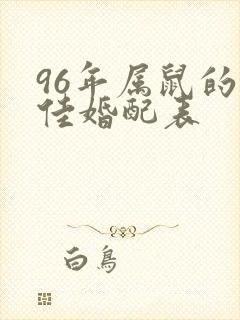 96年属鼠的
佳婚配表
白鳥